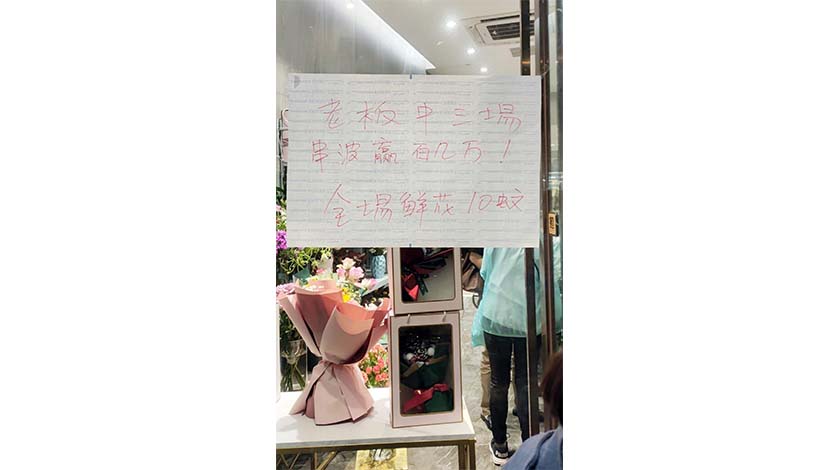 老板中三場
串波贏百几万！
全場鮮花10蚊